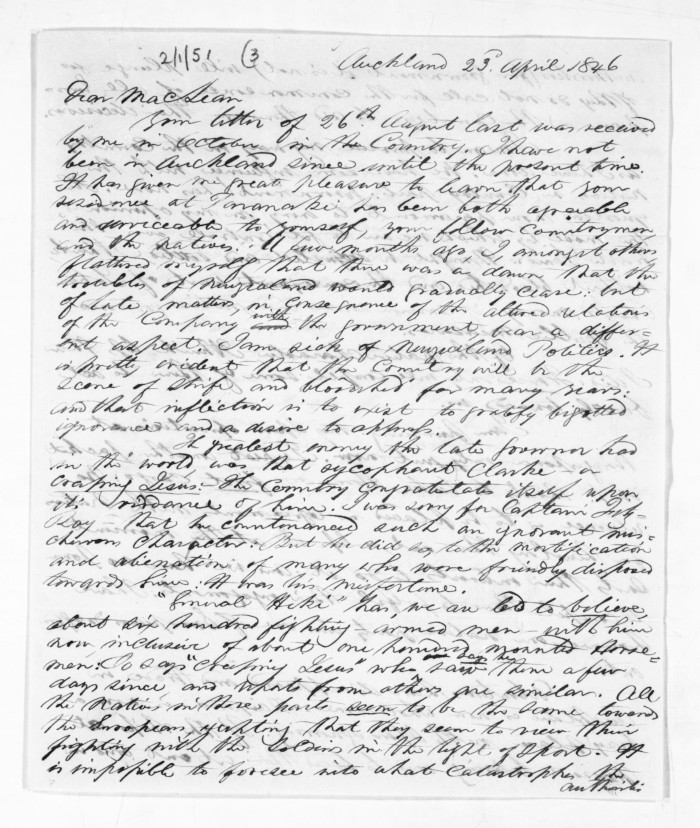 2/1/51 (3
Auckland 23d April 1846
Dear MacLean
Your letter of 26th August last was received
by me in October in the Country. I have not
been in Auckland since until the present time.
It has given me great pleasure to learn that your
residence at Taranaki has been both agreeable
and serviceable to yourself, your fellow Countrymen
and the natives. A few months ago, I, amongst others
flattered myself that there was a dawn that the
troubles of Newzealand would gradually cease: but
of late, matters, in Consequence of the altered relations
of the Company with the government bear a differ-
ent aspect. I am sick of Newzealand Politics. It
is pretty evident that the Country will be the
scene of strife and bloodshed for many years:
and that infliction is to exist to gratify bigotted
ignorance and a desire to oppress.
The greatest enemy the late governor had
in the world was that sycophant Clarke a
Creeping Jesus: The Country Congratulates itself upon
its riddance of him. I was sorry for Captain Fitz-
Roy that he countenanced such an ignorant mis-
chievous character: But he did so to the mortification
and alienation of many who were friendly disposed
towards him: it was his misfortune.
"General Heke" has, we are led to believe,
about six hundred fighting armed men with him
now, inclusive of about one hundred mounted Horse-
men: So says "Creeping Jesus" who says he saw them a few
days since and reports from others are similar. All
the Natives in these parts seem to be the same towards
the Europeans, excepting that they seem to view their
fighting with the Soldiers in the light of Sport. It
is impossible to foresee into what Catastrophes the
authorities